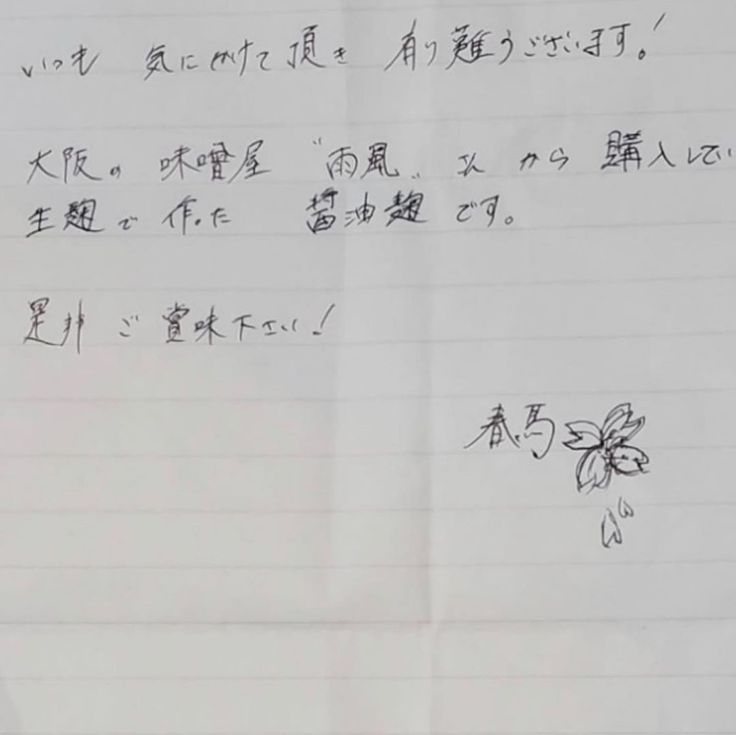 いつも 気にかけて頂き 有り難うございます!
大阪の 味噌屋 "雨風" さん から 購入してい
生麹で 作った 醤油麹 です。
是非 ご賞味下さい!
春馬